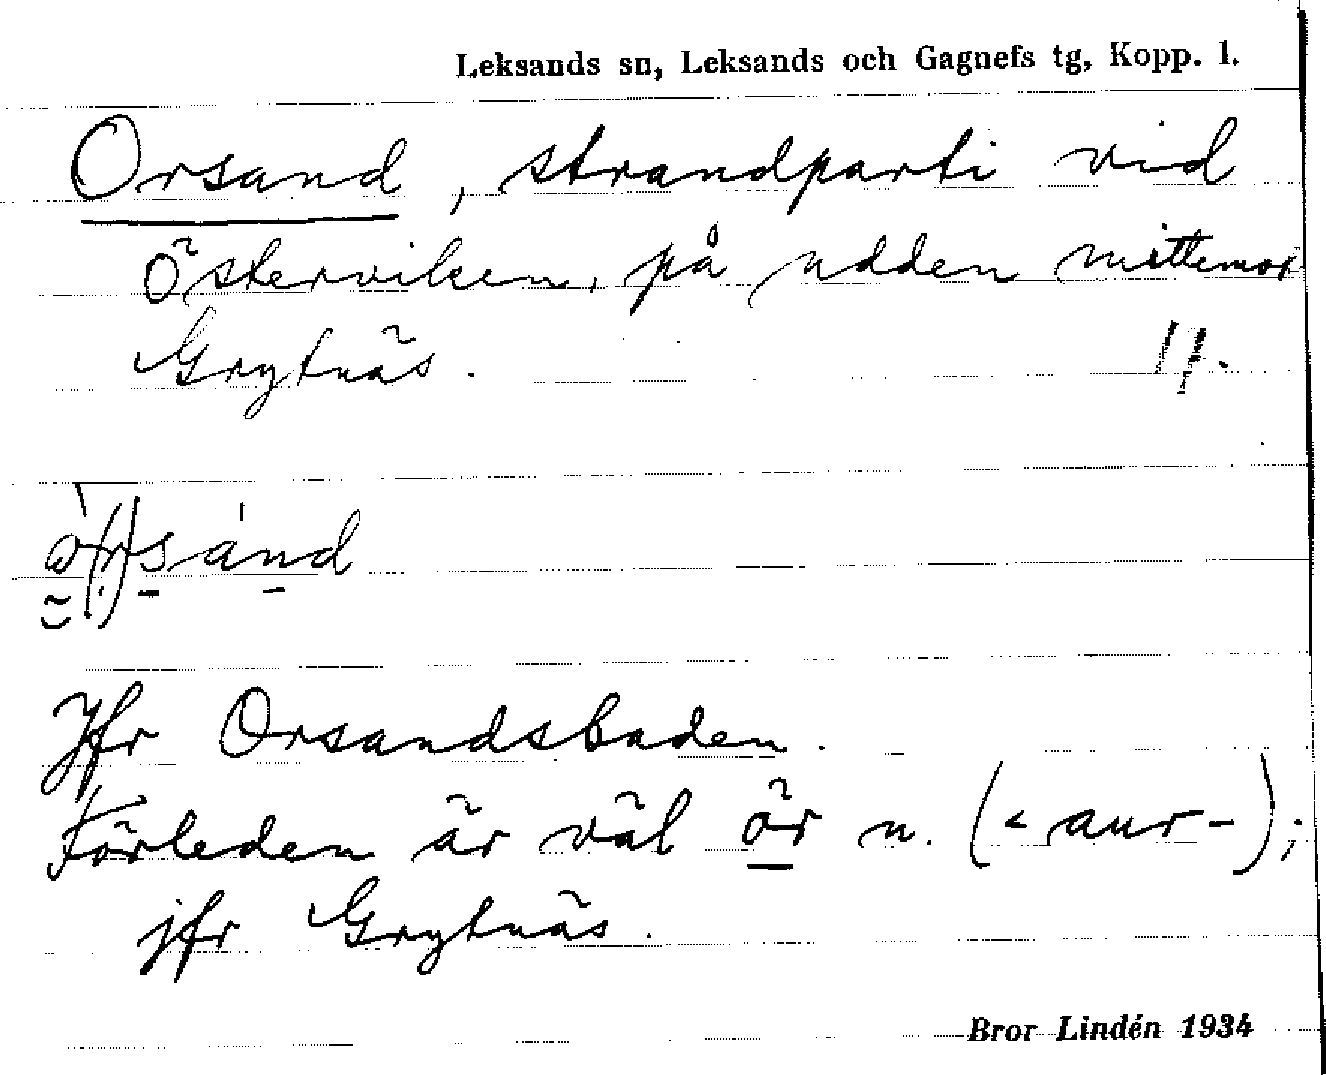 Leksands sn, Leksands och Gagnefs tg, Kopp. l.
Orsand, strandparti vid
Österviken, på udden mittemot
Grytnäs.
Jfr Orsandsbaden.
Förleden är väl ör n. (< aur-);
jfr Grytnäs.
Bror Lindén 1934